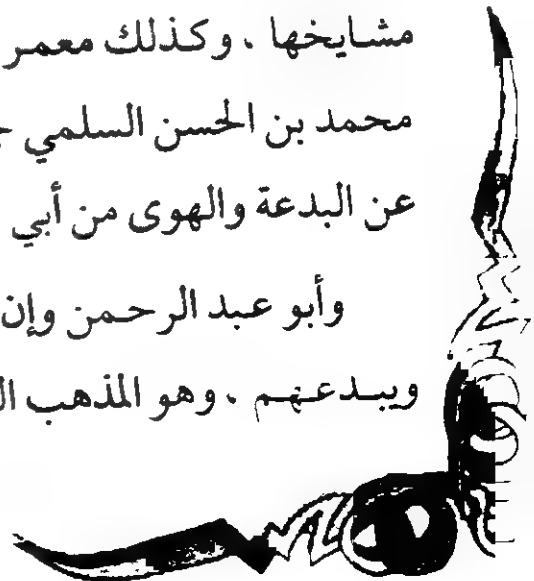 مشايخها . وكذلك معمر
محمد بن الحسن السلمي
عن البدعة والهوى من أبي
وأبو عبد الرحمن وإن
ويبدعهم . وهو المذهب